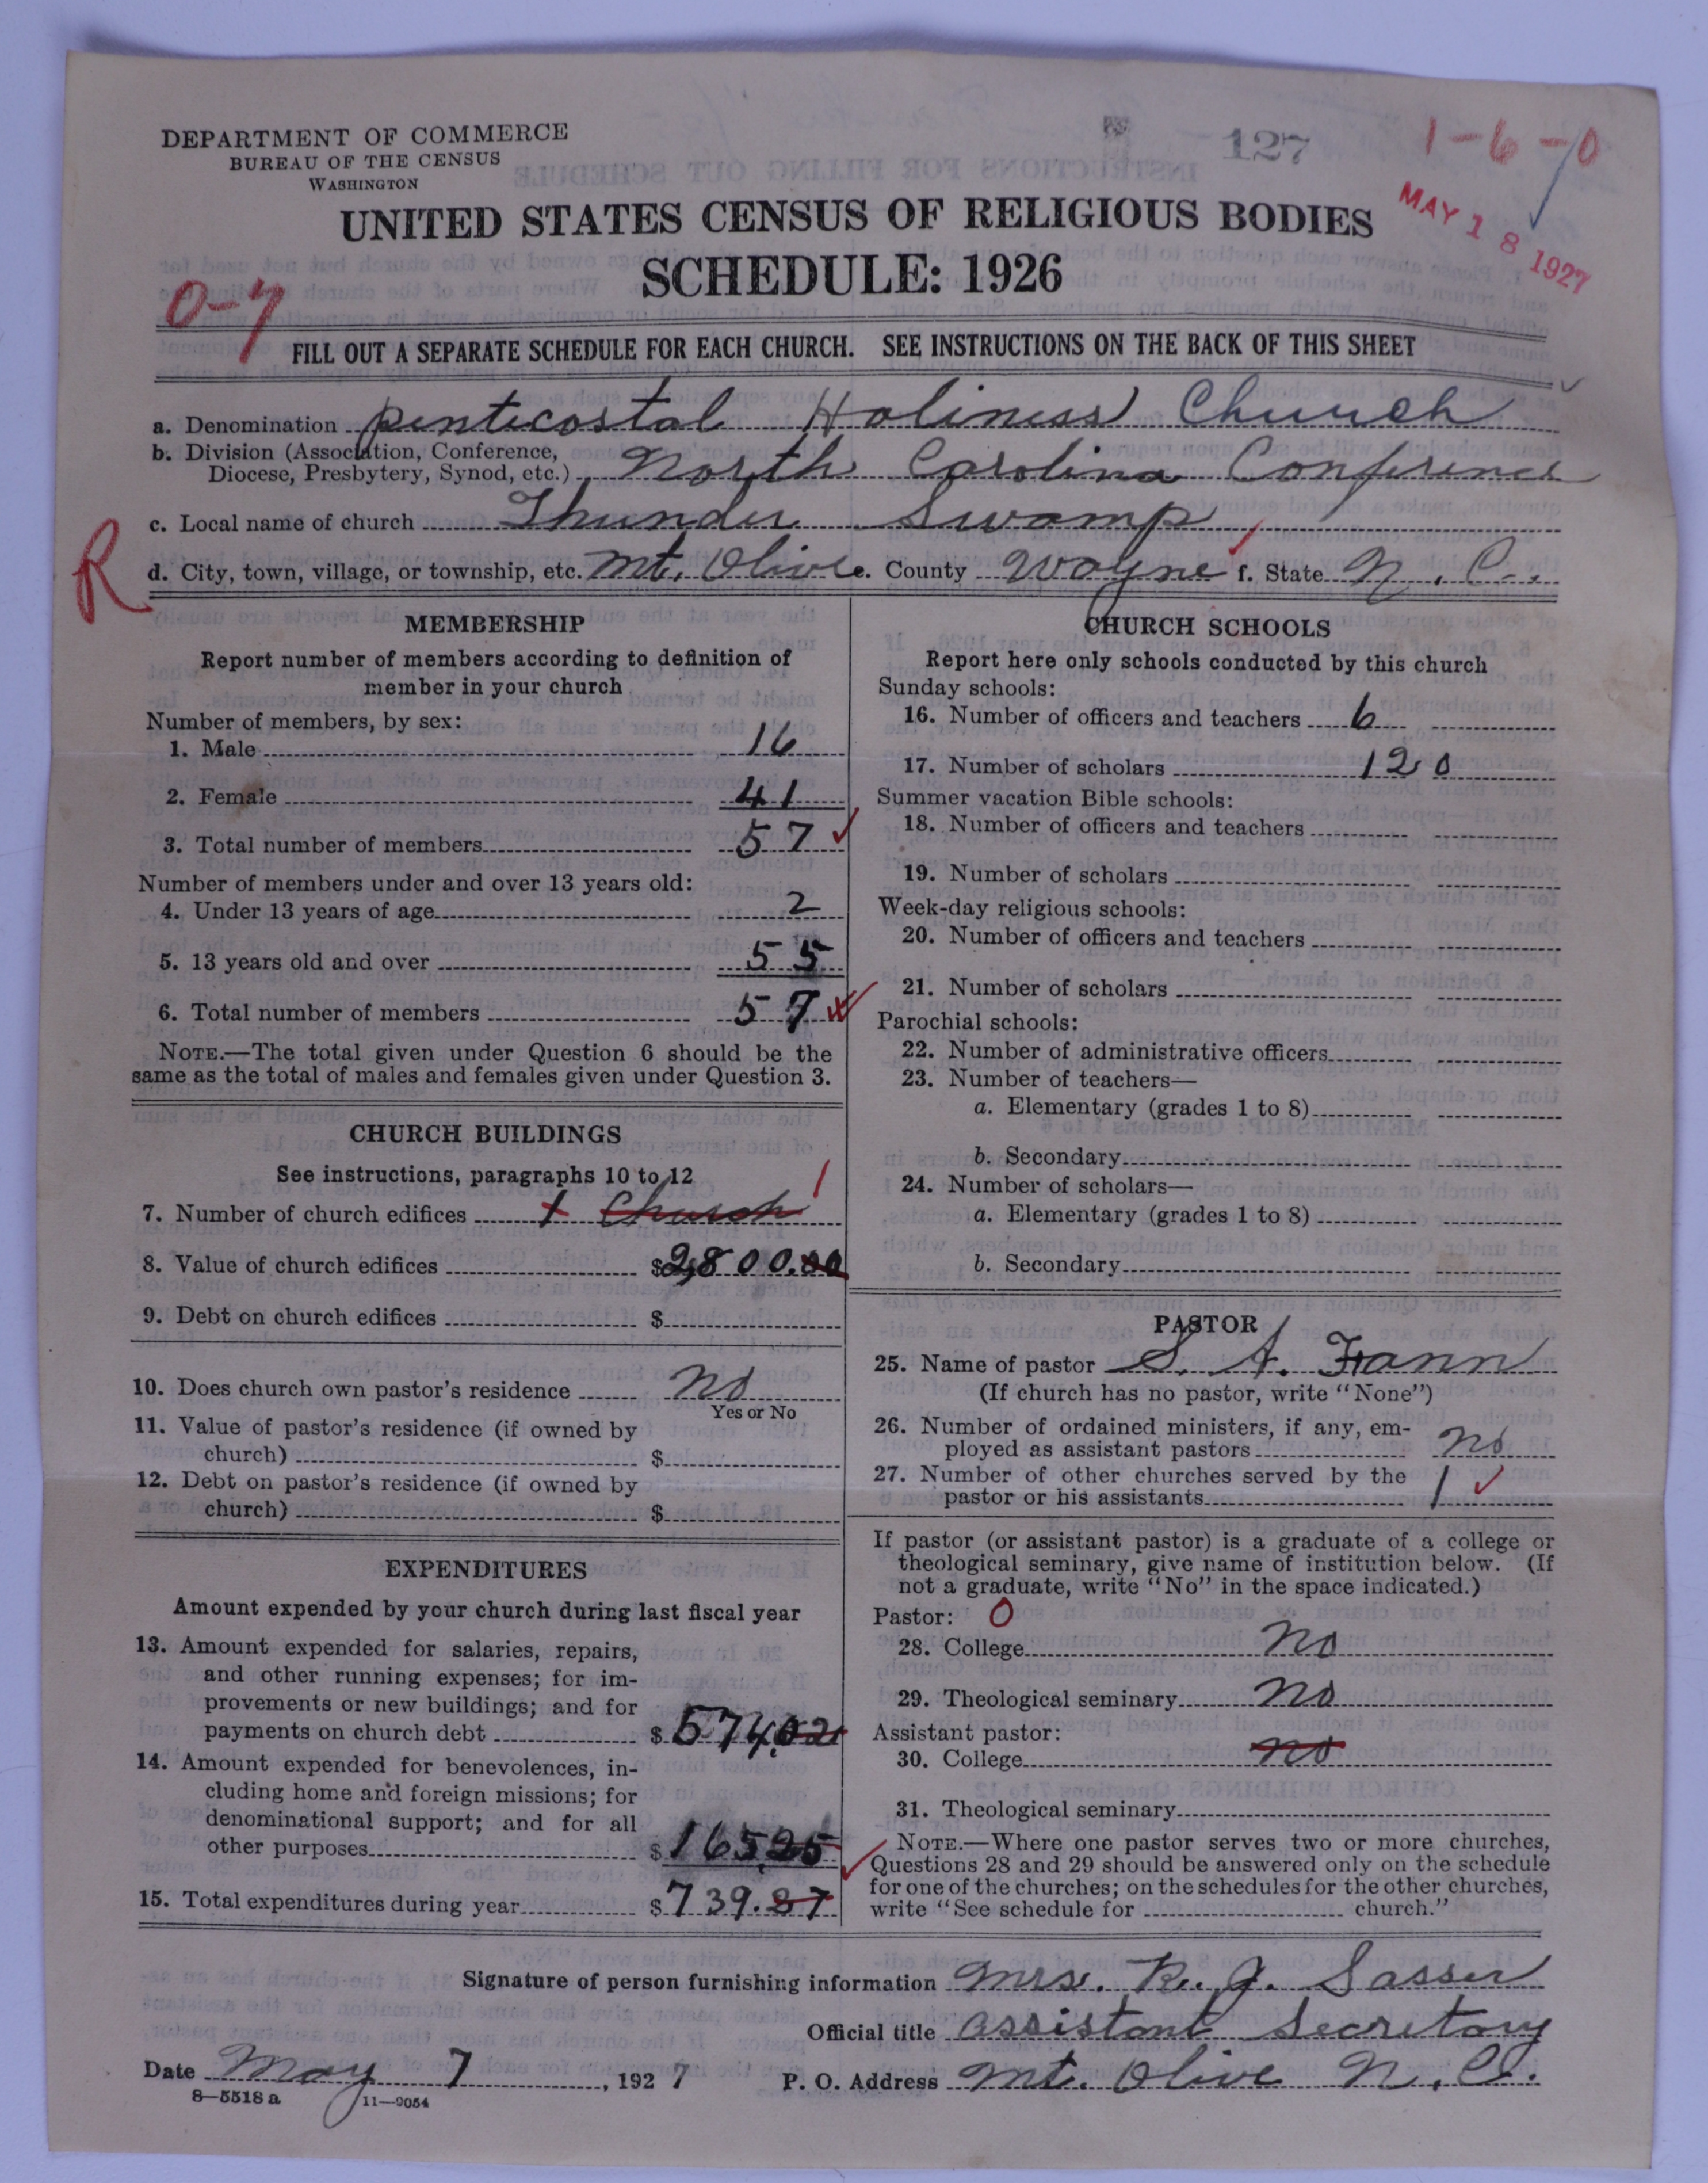 DEPARTMENT OF COMMERCE
BUREAU OF THE CENSUS
WASHINGTON
127
1-6-0
MAY 18 1927
UNITED STATES CENSUS OF RELIGIOUS BODIES
SCHEDULE: 1926
0-7
FILL OUT A SEPARATE SCHEDULE FOR EACH CHURCH. SEE INSTRUCTIONS ON THE BACK OF THIS SHEET
a. Denomination Pentecostal Holiness Church
b. Division (Association, Conference,
Diocese, Presbytery, Synod, etc.) North Carolina Conference
c. Local name of church Thunder Swamp
R
d. City, town, village, or township, etc. Mt. Olive e. County Wayne f. State N. C.
MEMBERSHIP
Report number of members according to definition of
member in your church
Number of members, by sex:
1. Male 16
2. Female 41
3. Total number of members 57
Number of members under and over 13 years old:
4. Under 13 years of age 2
5. 13 years old and over 55
6. Total number of members 57
NOTE.—The total given under Question 6 should be the
same as the total of males and females given under Question 3.
CHURCH BUILDINGS
See instructions, paragraphs 10 to 12
7. Number of church edifices 1 Church 1
8. Value of church edifices $2,800.00
9. Debt on church edifices $
10. Does church own pastor's residence No
Yes or No
11. Value of pastor's residence (if owned by
church) $
12. Debt on pastor's residence (if owned by
church) $
EXPENDITURES
Amount expended by your church during last fiscal year
13. Amount expended for salaries, repairs,
and other running expenses; for im-
provements or new buildings; and for
payments on church debt $574.02
14. Amount expended for benevolences, in-
cluding home and foreign missions; for
denominational support; and for all
other purposes $165.25
15. Total expenditures during year $739.27
CHURCH SCHOOLS
Report here only schools conducted by this church
Sunday schools:
16. Number of officers and teachers 6
17. Number of scholars 120
Summer vacation Bible schools:
18. Number of officers and teachers
19. Number of scholars
Week-day religious schools:
20. Number of officers and teachers
21. Number of scholars
Parochial schools:
22. Number of administrative officers
23. Number of teachers—
a. Elementary (grades 1 to 8)
b. Secondary
24. Number of scholars—
a. Elementary (grades 1 to 8)
b. Secondary
PASTOR
25. Name of pastor S. A. Fann
(If church has no pastor, write "None")
26. Number of ordained ministers, if any, em-
ployed as assistant pastors No
27. Number of other churches served by the
pastor or his assistants 1
If pastor (or assistant pastor) is a graduate of a college or
theological seminary, give name of institution below. (If
not a graduate, write "No" in the space indicated.)
Pastor: 0
28. College No
29. Theological seminary No
Assistant pastor:
30. College No
31. Theological seminary
NOTE.—Where one pastor serves two or more churches,
Questions 28 and 29 should be answered only on the schedule
for one of the churches; on the schedules for the other churches,
write "See schedule for church."
Signature of person furnishing information Mrs. R. J. Sasser
Official title Assistant Secretary
Date May 7, 1927
P. O. Address Mt. Olive N. C.
8—5518 a
11—9054